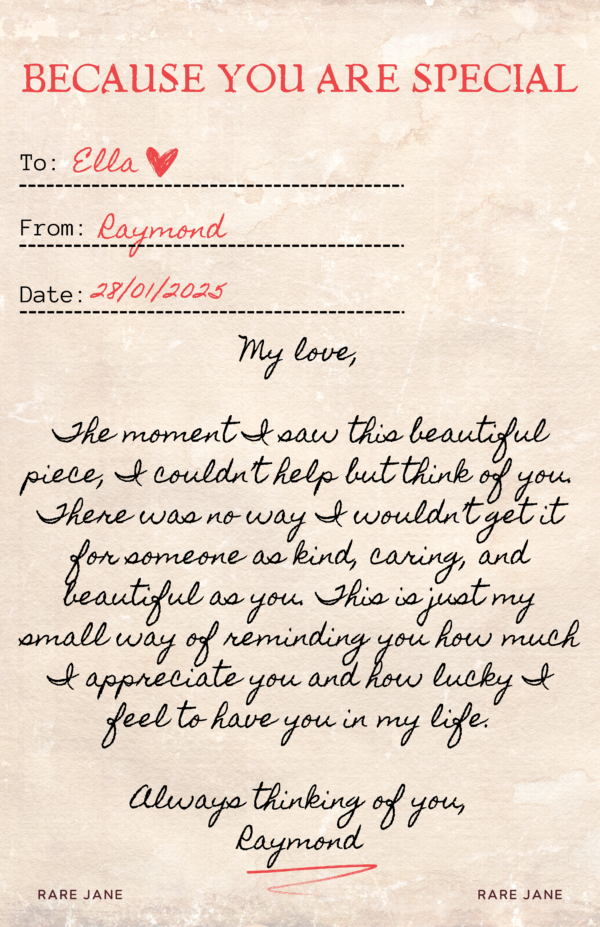 BECAUSE YOU ARE SPECIAL
To: Ella
From: Raymond
Date: 28/01/2025
My love,
The moment I saw this beautiful
piece, I couldn't help but think of you.
There was no way I wouldn't get it
for someone as kind, caring, and
beautiful as you. This is just my
small way of reminding you how much
I appreciate you and how lucky I
feel to have you in my life.
Always thinking of you,
Raymond
RARE JANE
RARE JANE